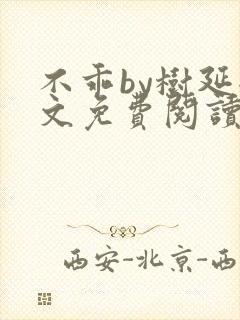 不乖by樹延
文免費閱讀
西安-北京-西